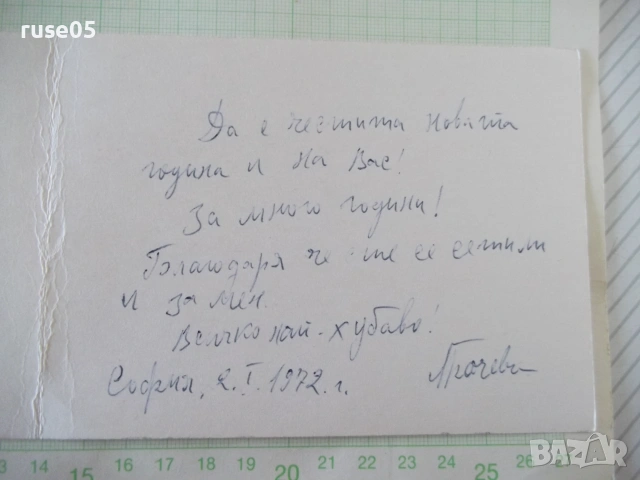 ruse05
Да е честита новата
година и на Вас!
За много години!
Благодаря че сте се сетили
и за мен.
Всичко най-хубаво!
София, 2.I.1972 г.
BAZAR
13 14 15 16 17 18 19 20 21 22 23 24 25 26 27